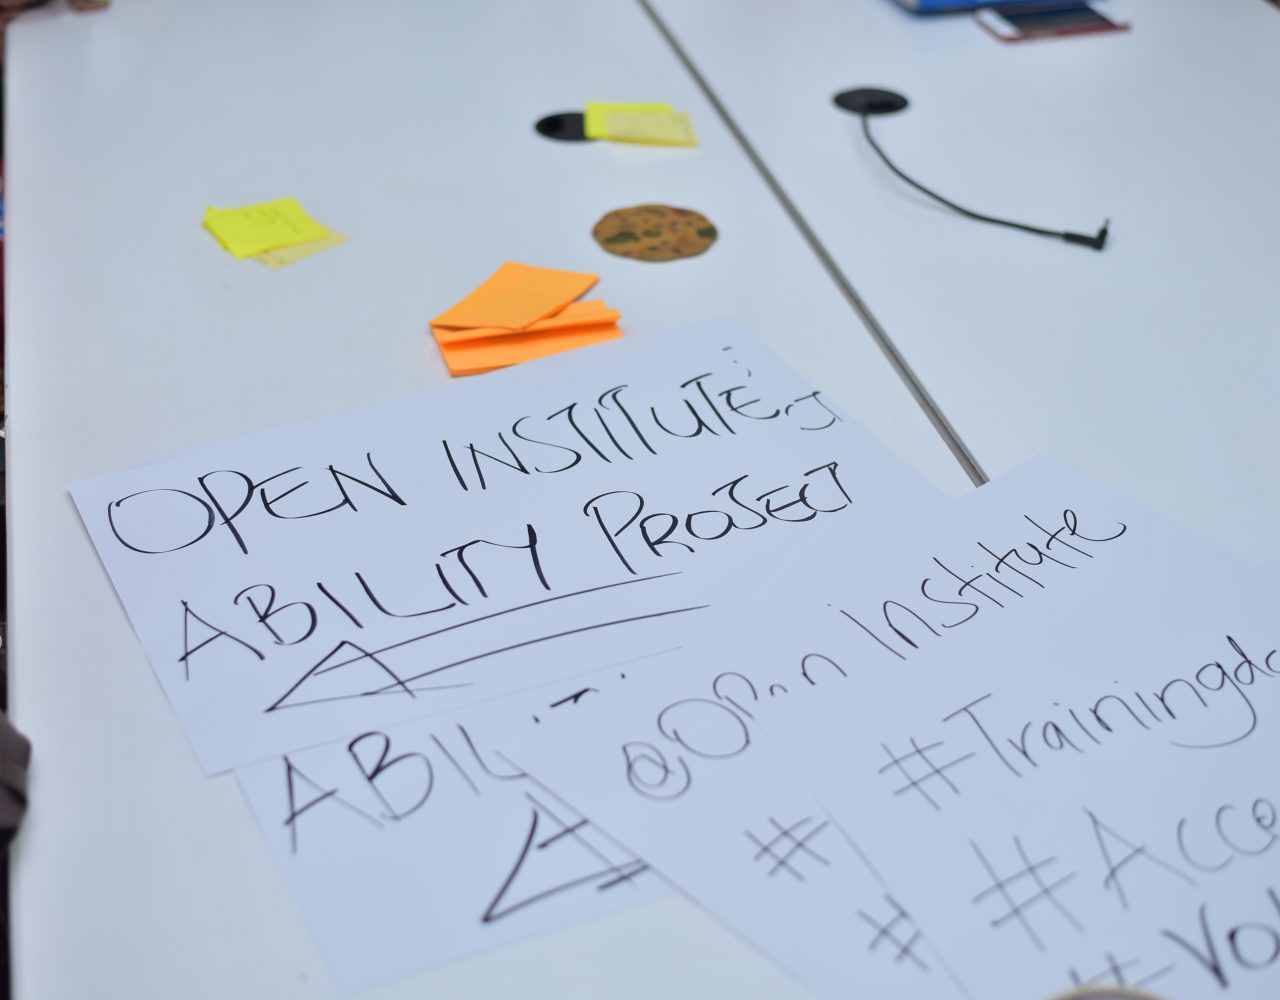 OPEN INSTITUTE
ABILITY PROJECT
ABIL
@Open Institute
#Trainingda
#Acce
#Vol
#
#